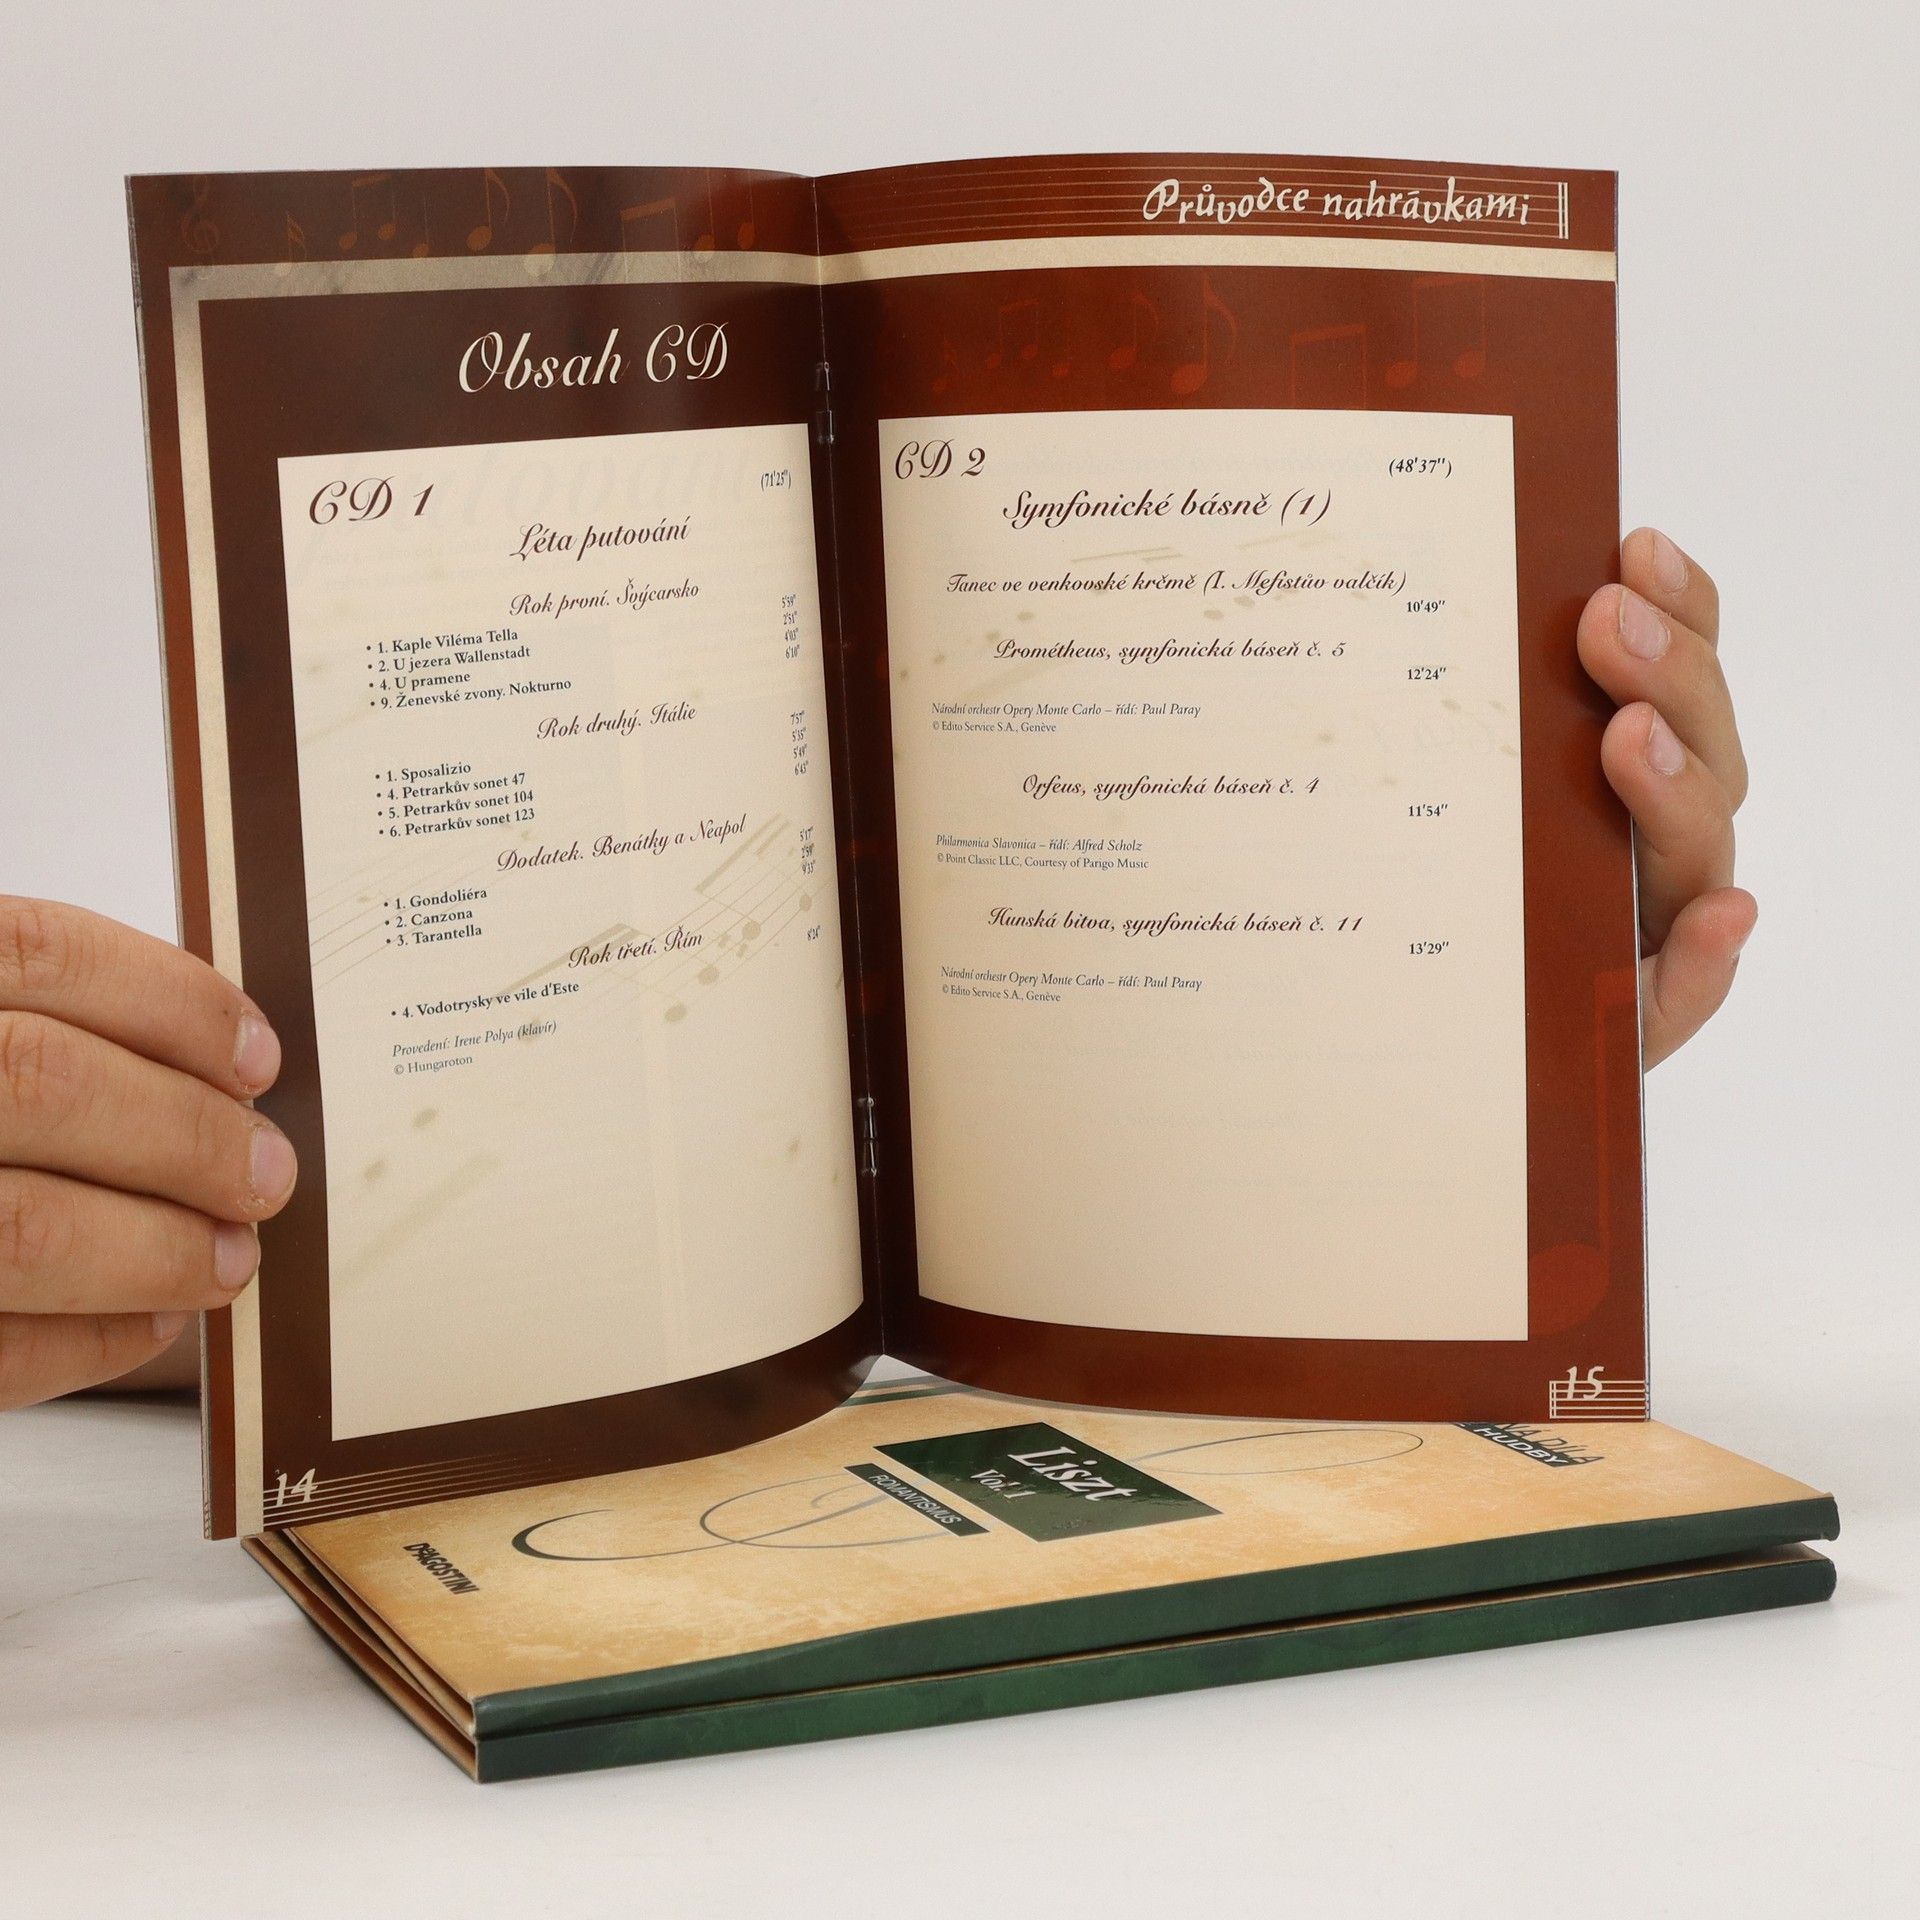 Průvodce nahrávkami
Obsah CD
CD 1 (71'25")
Léta putování
Rok první. Švýcarsko
• 1. Kaple Viléma Tella 5'59"
• 2. U jezera Wallenstadt 2'51"
• 4. U pramene 4'03"
• 9. Ženevské zvony. Nokturno 6'10"
Rok druhý. Itálie
• 1. Sposalizio 7'57"
• 4. Petrarkův sonet 47 5'35"
• 5. Petrarkův sonet 104 5'49"
• 6. Petrarkův sonet 123 6'43"
Dodatek. Benátky a Neapol
• 1. Gondoliéra 5'17"
• 2. Canzona 2'59"
• 3. Tarantella 9'33"
Rok třetí. Řím
• 4. Vodotrysky ve vile d'Este 8'24"
Provedení: Irene Polya (klavír)
© Hungaroton
14
CD 2 (48'37")
Symfonické básně (1)
Tanec ve venkovské krčmě (I. Mefistův valčík)
10'49"
Prométheus, symfonická báseň č. 5
12'24"
Národní orchestr Opery Monte Carlo – řídí: Paul Paray
© Edito Service S.A., Genève
Orfeus, symfonická báseň č. 4
11'54"
Philarmonica Slavonica – řídí: Alfred Scholz
© Point Classic LLC, Courtesy of Parigo Music
Hunská bitva, symfonická báseň č. 11
13'29"
Národní orchestr Opery Monte Carlo – řídí: Paul Paray
© Edito Service S.A., Genève
15
Liszt
Vol. 1
ROMANTISMUS
DeAGOSTINI
DÍLA
HUDBY